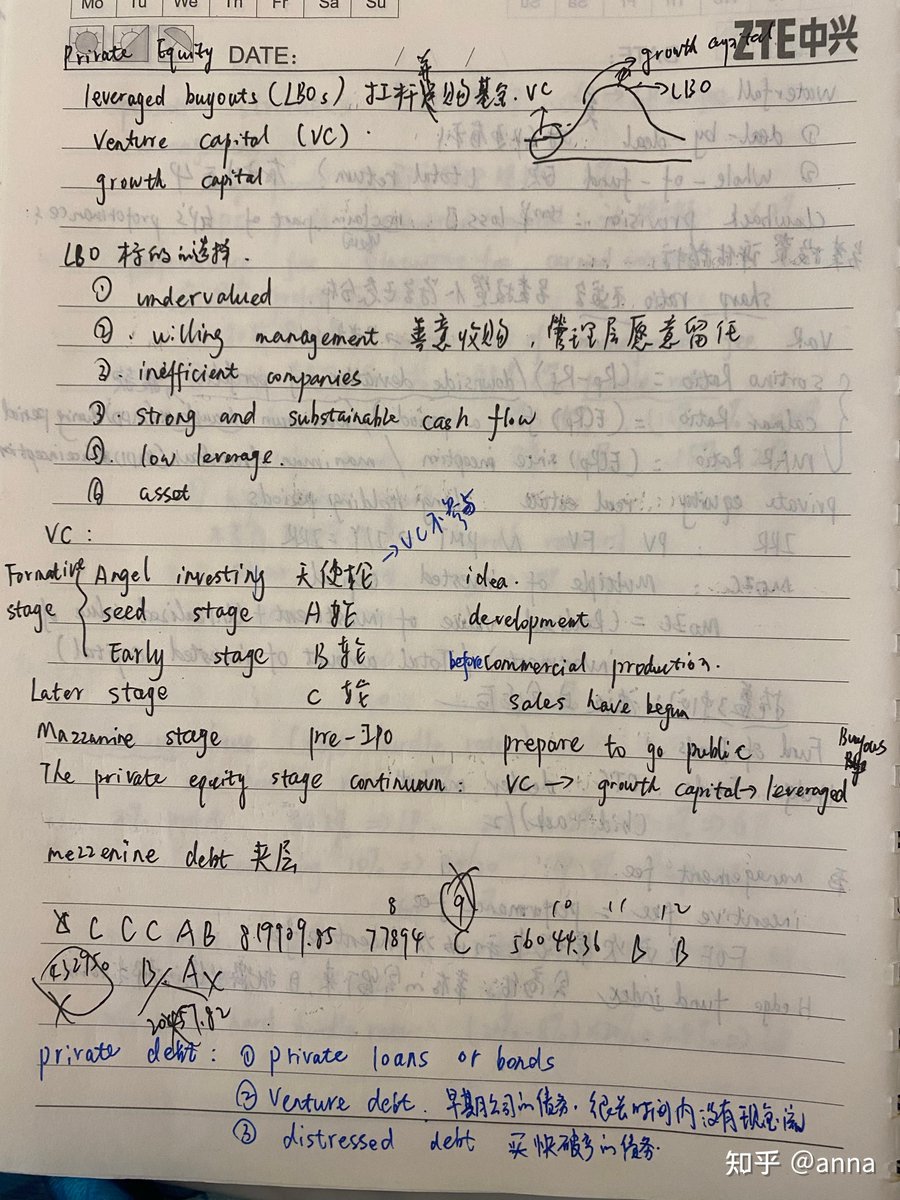 Mo Tu We Th Fr Sa Su
ZTE中兴
Private Equity DATE: / /
growth capital
leveraged buyouts (LBOs) 杠杆并购基金. VC
LBO
Venture capital (VC)
growth capital
LBO 标的的选择.
① undervalued
②. willing management 善意收购, 管理层愿意留任
③. inefficient companies
④. strong and substainable cash flow
⑤. low leverage.
⑥ asset
VC:
→VC不参与
Formative stage
Angel investing 天使轮 idea.
seed stage A轮 development
Early stage B轮 before commercial production.
Later stage C轮 sales have begun
Mazzanine stage pre-IPO prepare to go public
The private equity stage continuoun: VC → growth capital → leveraged
Buyous
mezzenine debt 夹层
8 9 10 11 12
C C C A B 819909.85 77894 C 56044.36 B B
432950 B A
20457.82
private debt: ① private loans or bonds
② Venture debt. 早期公司的债务. 很长时间内没有现金流
③ distressed debt 买快破产的债务.
知乎 @anna